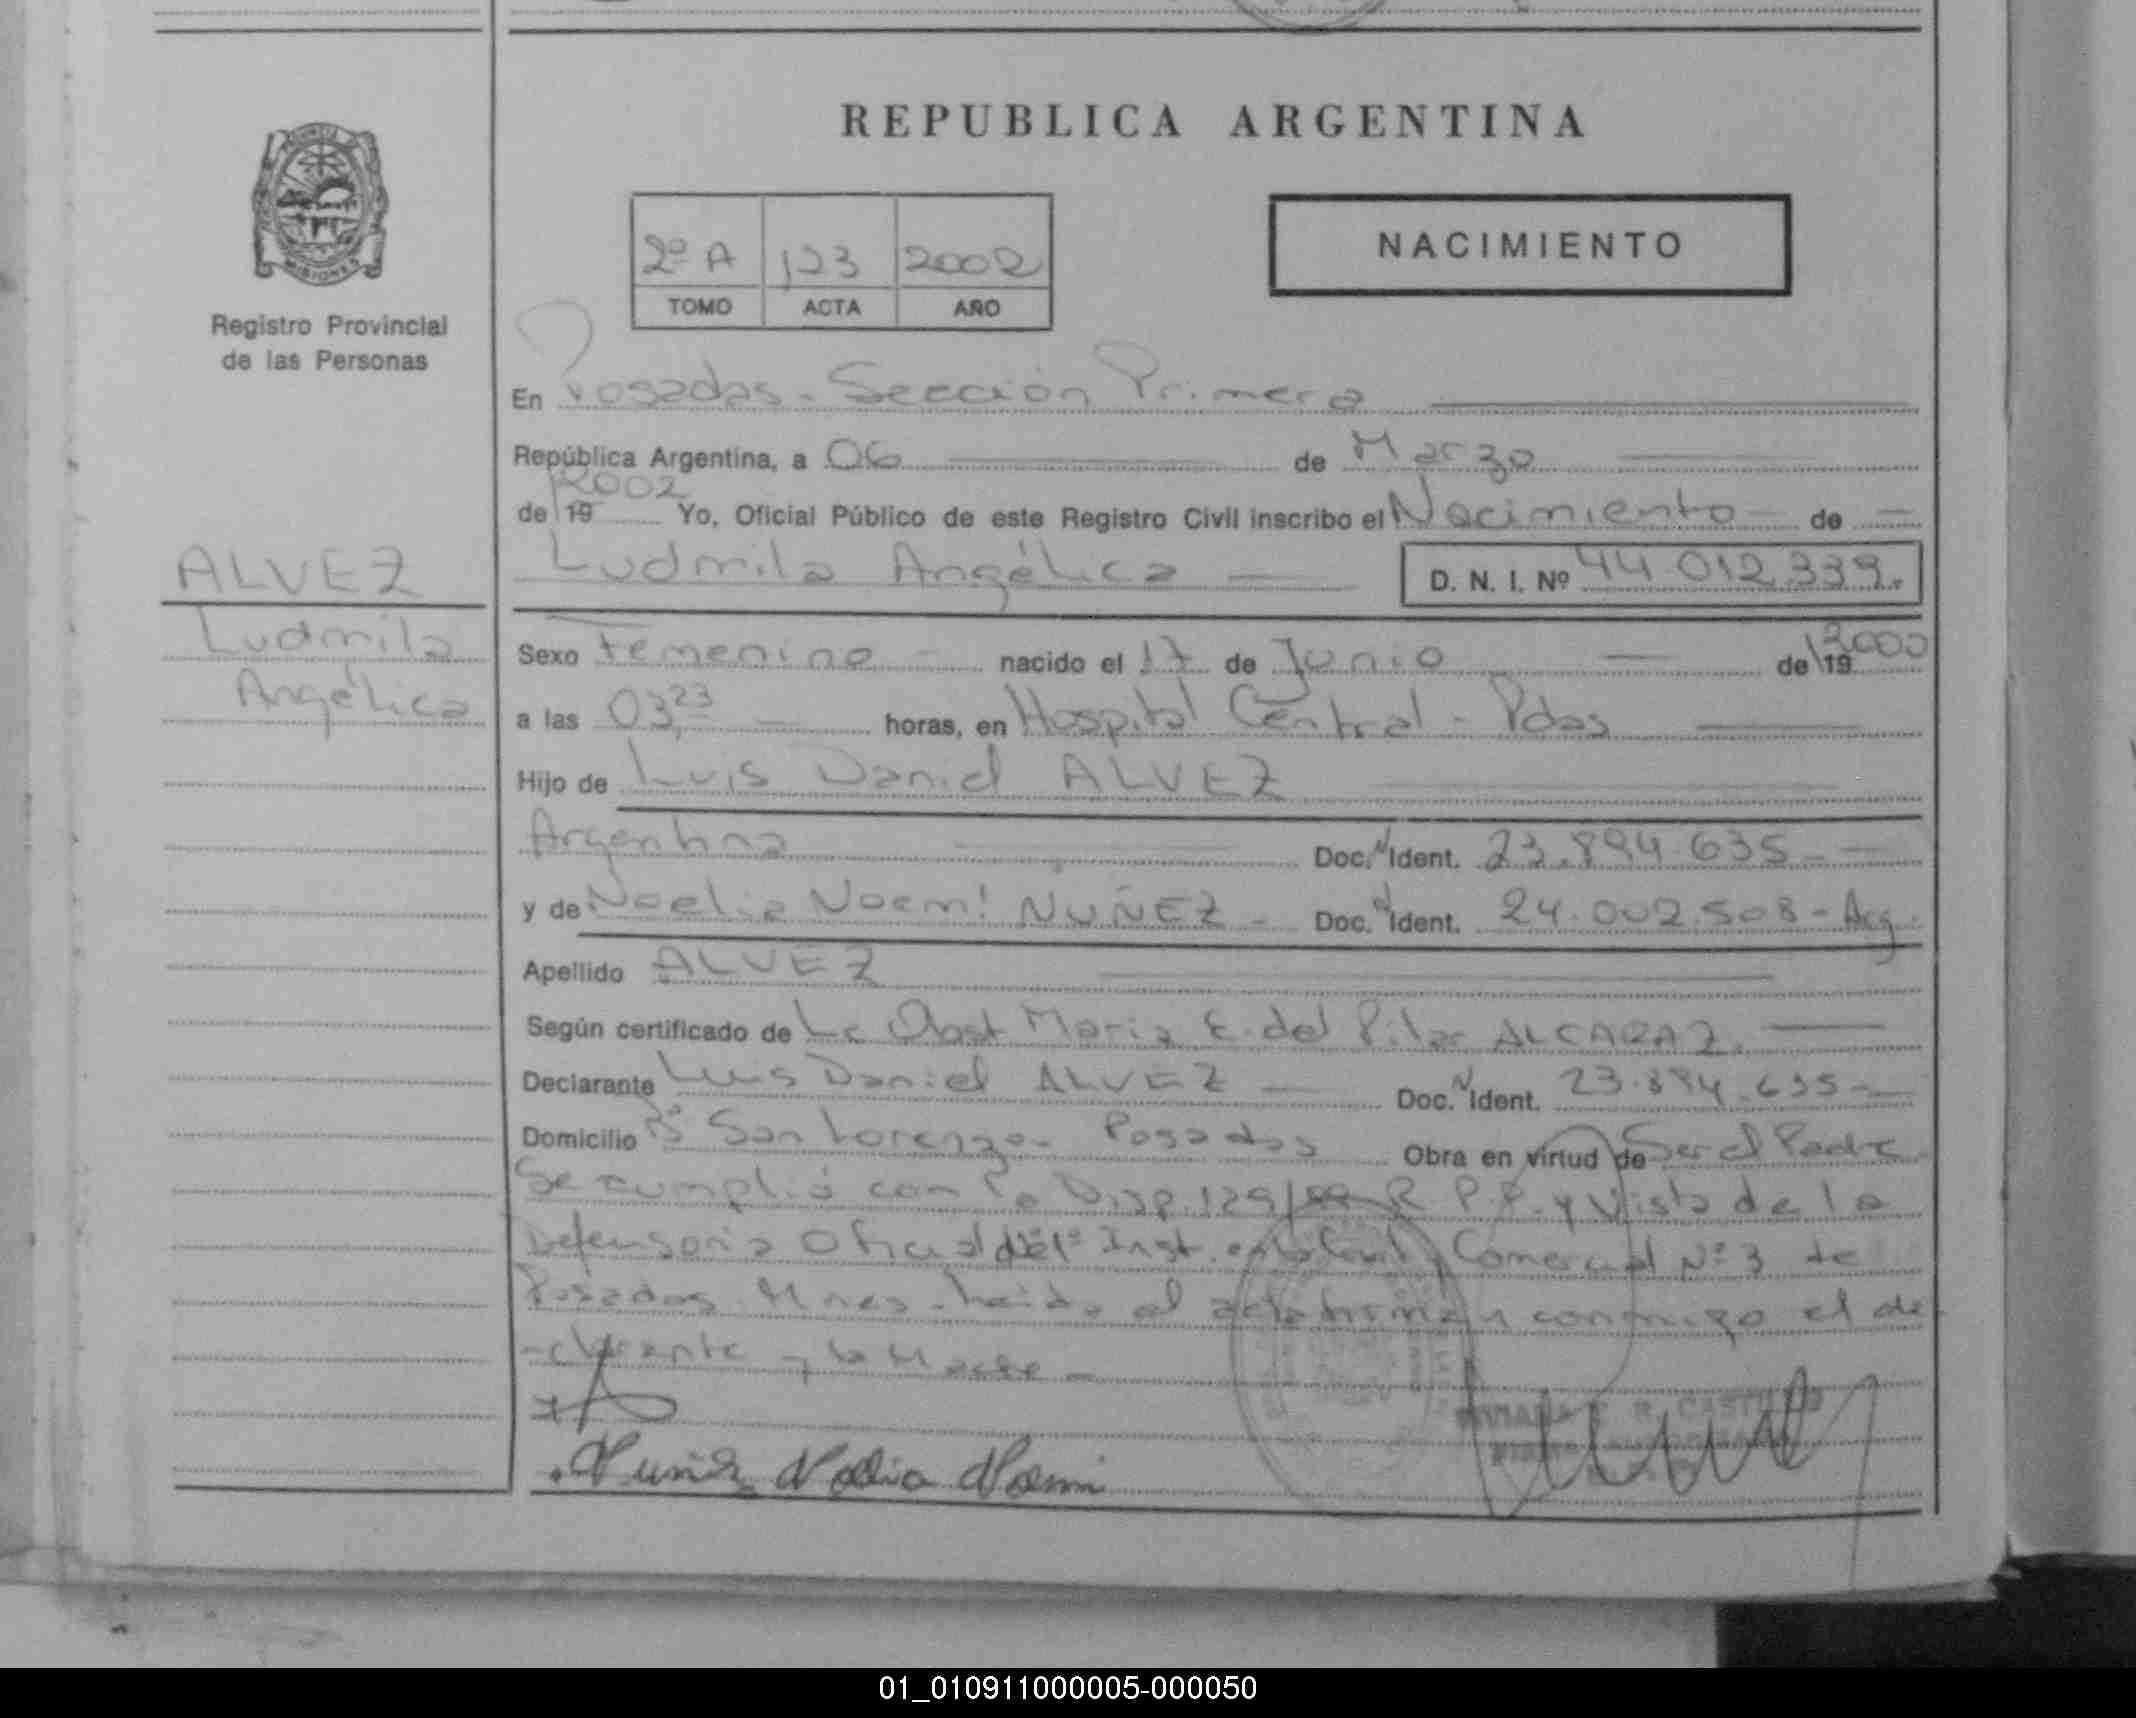 REPUBLICA ARGENTINA
MISIONES
Registro Provincial
de las Personas
2º A 123 2002
TOMO ACTA AÑO
NACIMIENTO
En Posadas - Sección Primera
República Argentina, a 06 de Marzo
de 19 2002 Yo, Oficial Público de este Registro Civil inscribo el Nacimiento de
ALVEZ
Ludmila Angélica
D. N. I. Nº 44.012.339.
Ludmila
Angélica
Sexo Femenino nacido el 17 de Junio de 19 2000
a las 03,23 horas, en Hospital Central - Pdas
Hijo de Luis Daniel ALVEZ
Argentina Doc. N Ident. 23.894.635
y de Noelia Noemí NUÑEZ - Doc. N Ident. 24.002.508 - Arg.
Apellido ALVEZ
Según certificado de La Obst María E. del Pilar ALCARAZ.
Declarante Luis Daniel ALVEZ Doc. N Ident. 23.894.635
Domicilio Bº San Lorenzo - Posadas Obra en virtud de Ser el Padre
Se cumplió con la Disp. 129/ R P.P. y Vista de la
Defensoria Oficial de 1º Inst. en lo Civil y Comercial Nº 3 de
Posadas Mnes - leida el acta firman conmigo el de
-clarante y la Madre -
R. CASTILLO
Nuñez Noelia Noemi
01_010911000005-000050